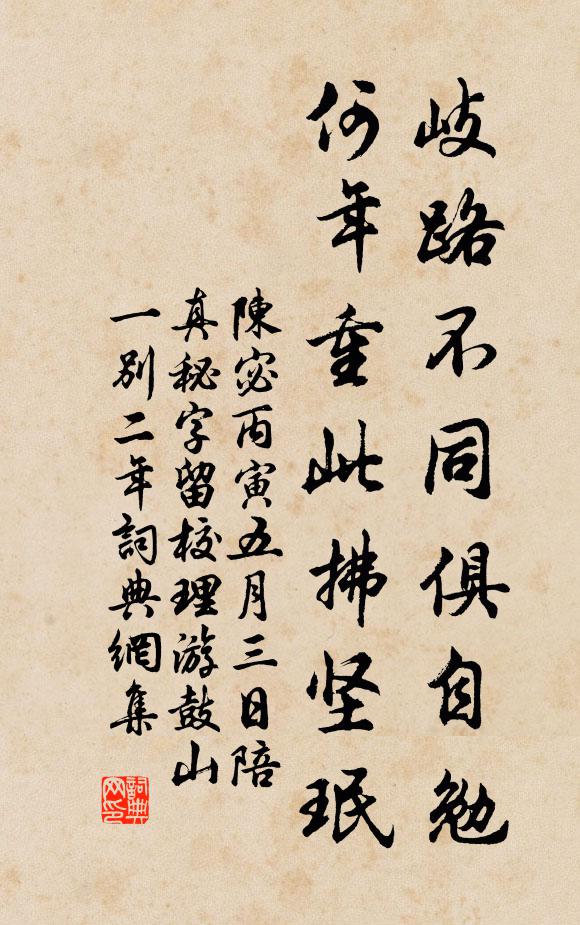 岐路不同俱自勉
何年重此拂坚珉
陳宓丙寅五月三日陪
真秘字留校理游鼓山
一别二年詞典網集
詞典网印